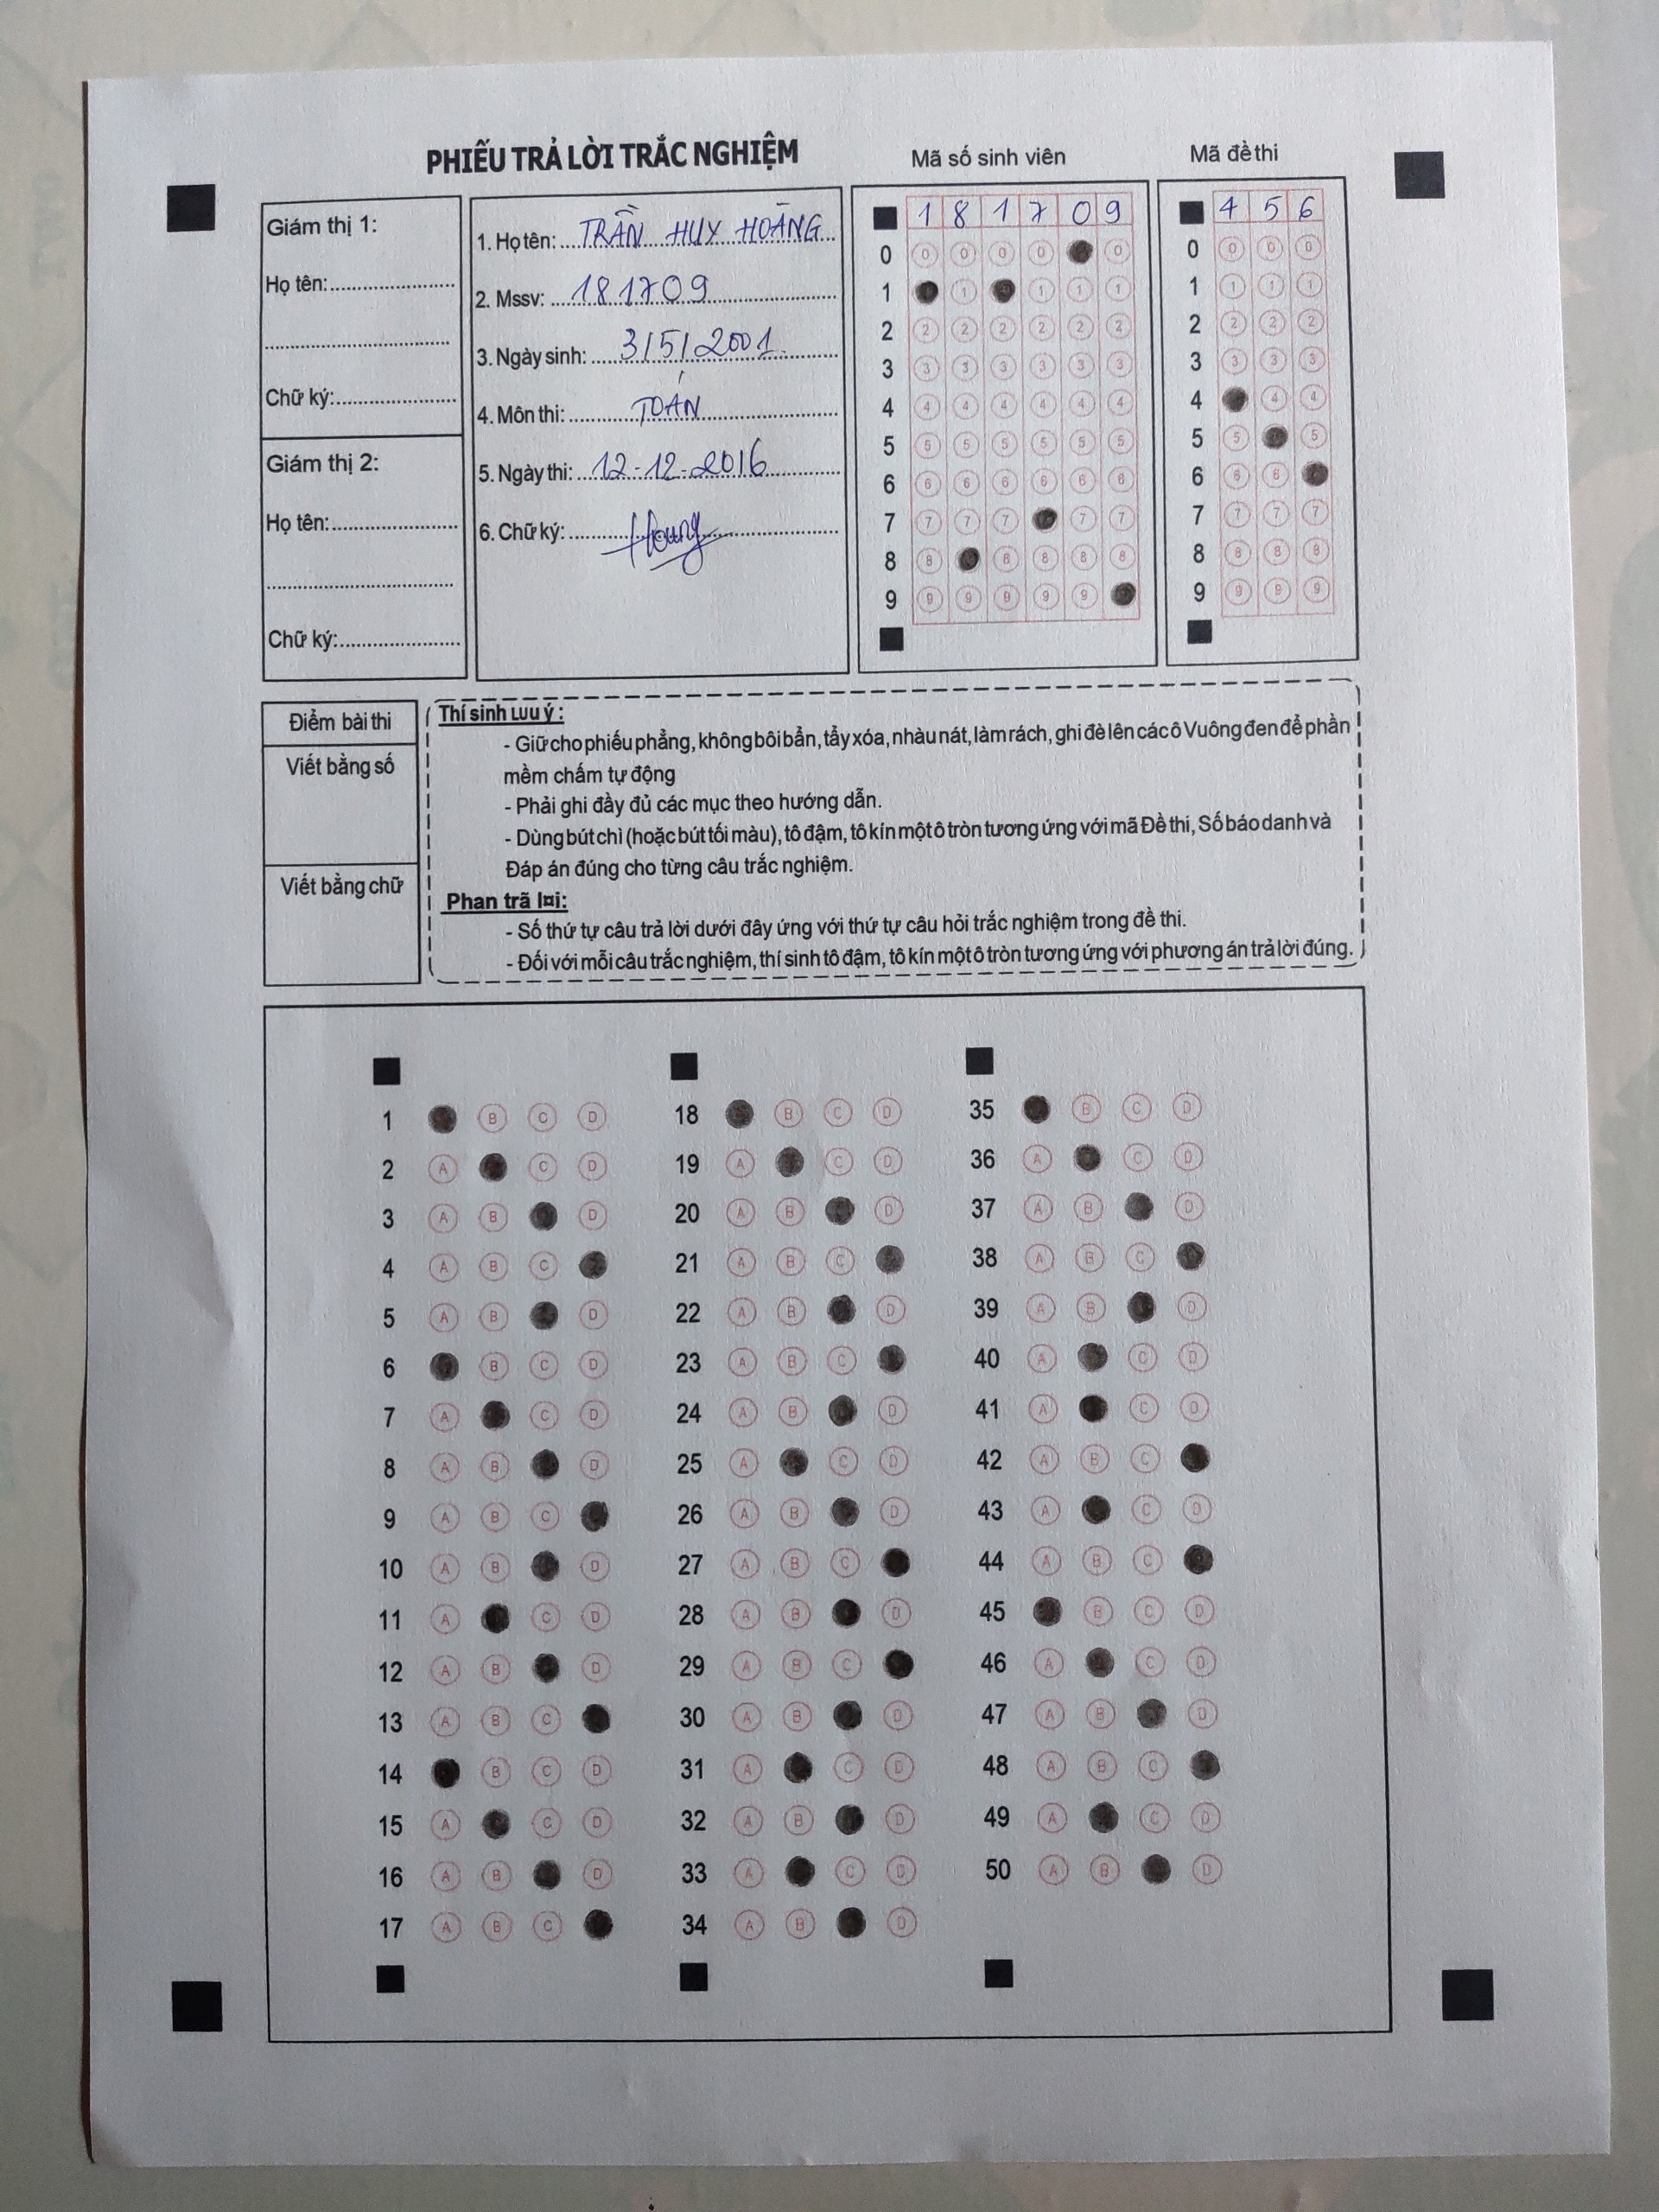 PHIẾU TRẢ LỜI TRẮC NGHIỆM
Giám thị 1:
Họ tên:
Chữ ký:
Giám thị 2:
Họ tên:
Chữ ký:
1. Họ tên: TRẦN HUY HOÀNG
2. Mssv: 181709
3. Ngày sinh: 3/5/2001
4. Môn thi: TOÁN
5. Ngày thi: 12-12-2016
6. Chữ ký: Hoang
Mã số sinh viên
1 8 1 7 0 9
0 0 0 0 0 0
1 1 1 1 1
2 2 2 2 2 2 2
3 3 3 3 3 3 3
4 4 4 4 4 4 4
5 5 5 5 5 5 5
6 6 6 6 6 6 6
7 7 7 7 7 7
8 8 8 8 8 8
9 9 9 9 9 9
Mã đề thi
4 5 6
0 0 0 0
1 1 1 1
2 2 2 2
3 3 3 3
4 4 4
5 5 5
6 6 6
7 7 7 7
8 8 8 8
9 9 9 9
Điểm bài thi
Viết bằng số
Viết bằng chữ
Thí sinh LƯU ý :
- Giữ cho phiếu phẳng, không bôi bẩn, tẩy xóa, nhàu nát, làm rách, ghi đè lên các ô Vuông đen để phần
mềm chấm tự động
- Phải ghi đầy đủ các mục theo hướng dẫn.
- Dùng bút chì (hoặc bút tối màu), tô đậm, tô kín một ô tròn tương ứng với mã Đề thi, Số báo danh và
Đáp án đúng cho từng câu trắc nghiệm.
Phan trã l¤i:
- Số thứ tự câu trả lời dưới đây ứng với thứ tự câu hỏi trắc nghiệm trong đề thi.
- Đối với mỗi câu trắc nghiệm, thí sinh tô đậm, tô kín một ô tròn tương ứng với phương án trả lời đúng.
1 B C D
2 A C D
3 A B D
4 A B C
5 A B D
6 B C D
7 A C D
8 A B D
9 A B C
10 A B D
11 A C D
12 A B D
13 A B C
14 B C D
15 A C D
16 A B D
17 A B C
18 B C D
19 A C D
20 A B D
21 A B C
22 A B D
23 A B C
24 A B D
25 A C D
26 A B D
27 A B C
28 A B D
29 A B C
30 A B D
31 A C D
32 A B D
33 A C D
34 A B D
35 B C D
36 A C D
37 A B D
38 A B C
39 A B D
40 A C D
41 A C D
42 A B C
43 A C D
44 A B C
45 B C D
46 A C D
47 A B D
48 A B C
49 A C D
50 A B D